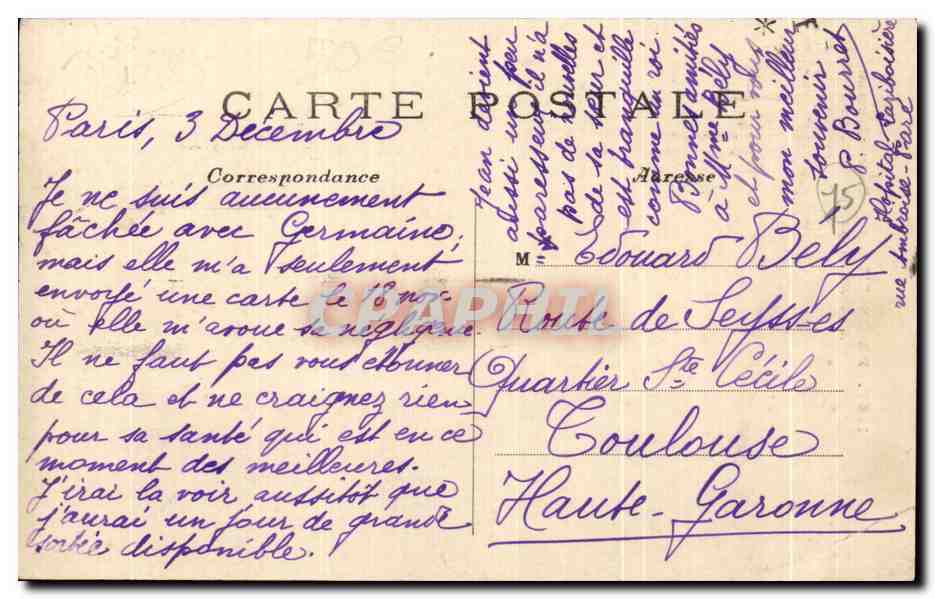 CARTE POSTALE
Correspondance
Adresse
Paris, 3 Décembre
Je ne suis aucunement
fâchée avec Germaine,
mais elle m'a seulement
envoyé une carte le 8 nov.
où elle m'avoue sa négligence.
Il ne faut pas vous étonner
de cela et ne craignez rien
pour sa santé qui est en ce
moment des meilleures.
J'irai la voir aussitôt que
j'aurai un jour de grande
sortie disponible.
Jean devient
aussi un peu
paresseux il n'a
pas de nouvelles
de sa sœur et
est tranquille
comme un roi
Bonnes amitiés
à Mme Bély
et pour vous
mon meilleur
souvenir
P. Bourret
Hôpital
rue Ambroise-Paré
75
M= Edouard Bely
Route de Seysses
Quartier Ste Cécile
Toulouse
Haute-Garonne
CPAPHIL